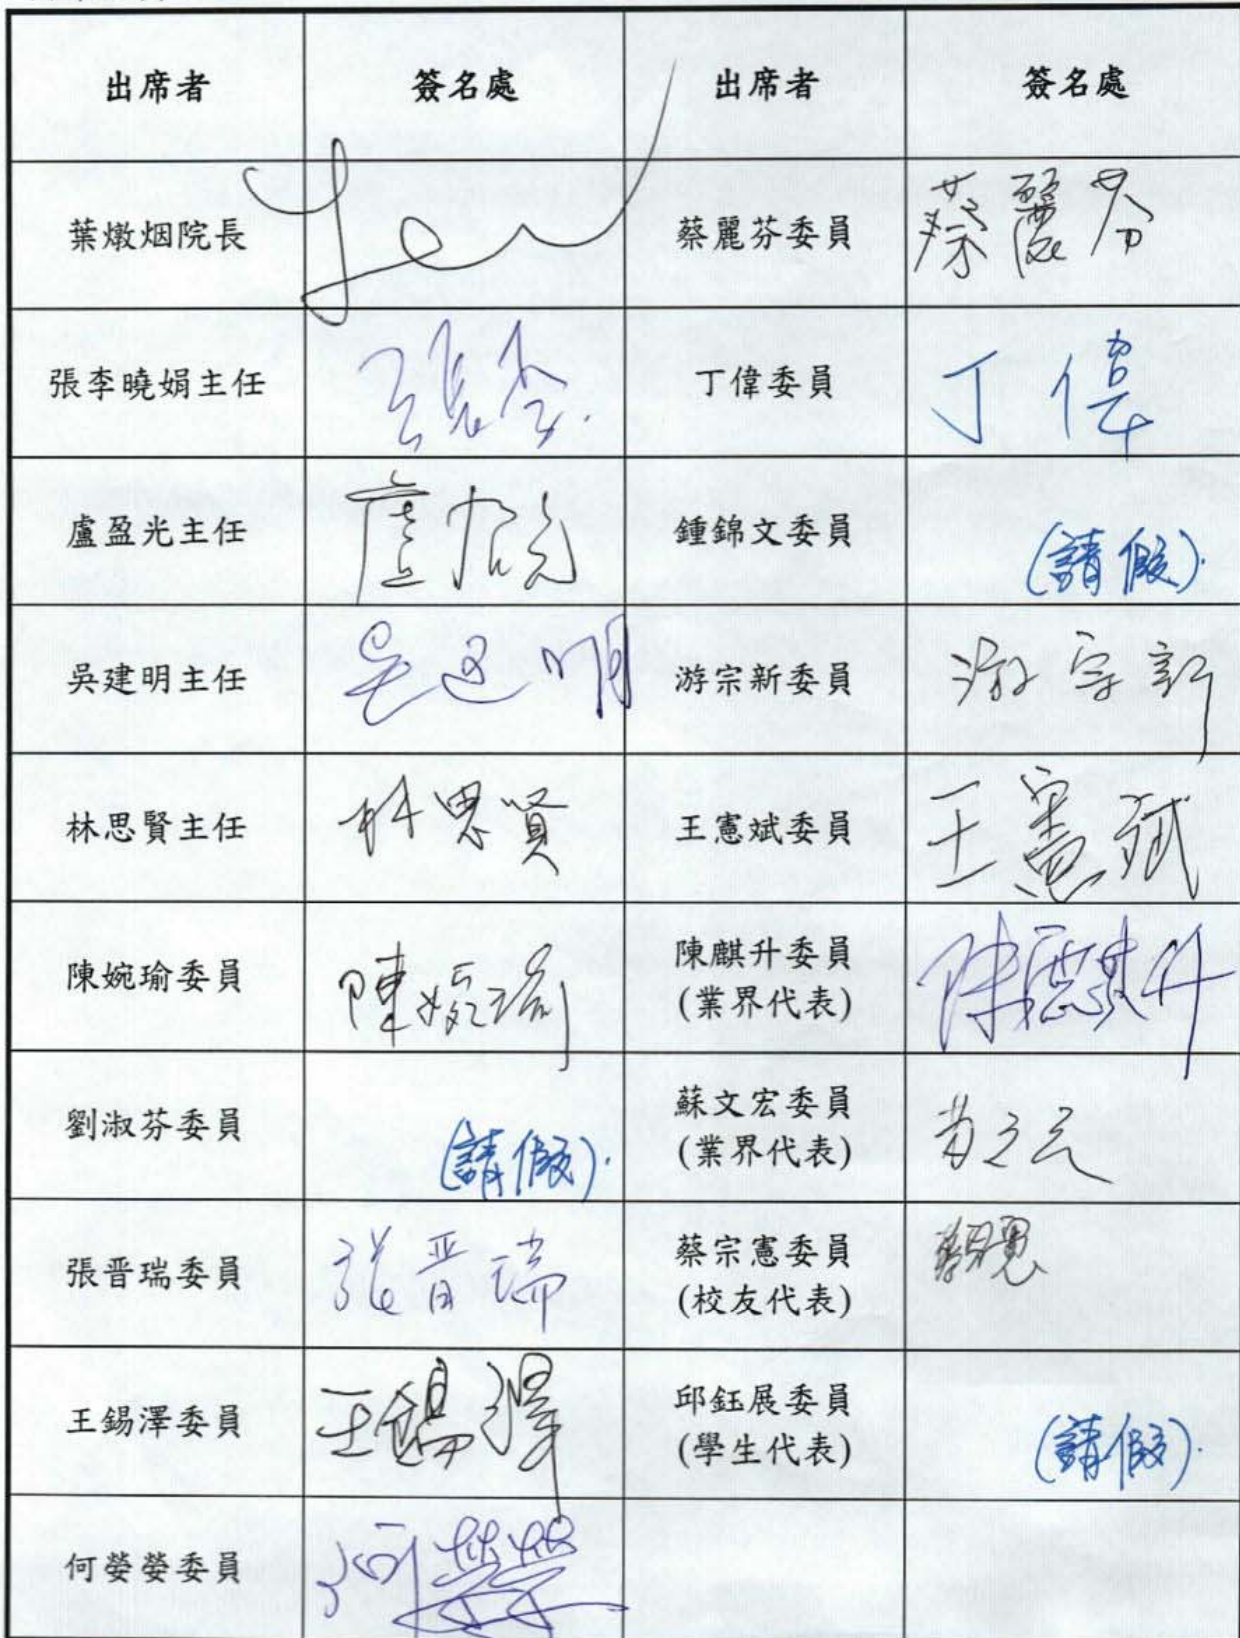 出席者 簽名處 出席者 簽名處
葉燉烟院長 蔡麗芬委員 蔡麗芬
張李曉娟主任 張李 丁偉委員 丁偉
盧盈光主任 鍾錦文委員 (請假).
吳建明主任 吳建明 游宗新委員 游宗新
林思賢主任 林思賢 王憲斌委員 王憲斌
陳婉瑜委員 陳婉瑜 陳麒升委員 陳麒升
(業界代表)
劉淑芬委員 (請假). 蘇文宏委員
(業界代表)
張晋瑞委員 張晋瑞 蔡宗憲委員
(校友代表)
王錫澤委員 王錫澤 邱鈺展委員 (請假).
(學生代表)
何嫈嫈委員